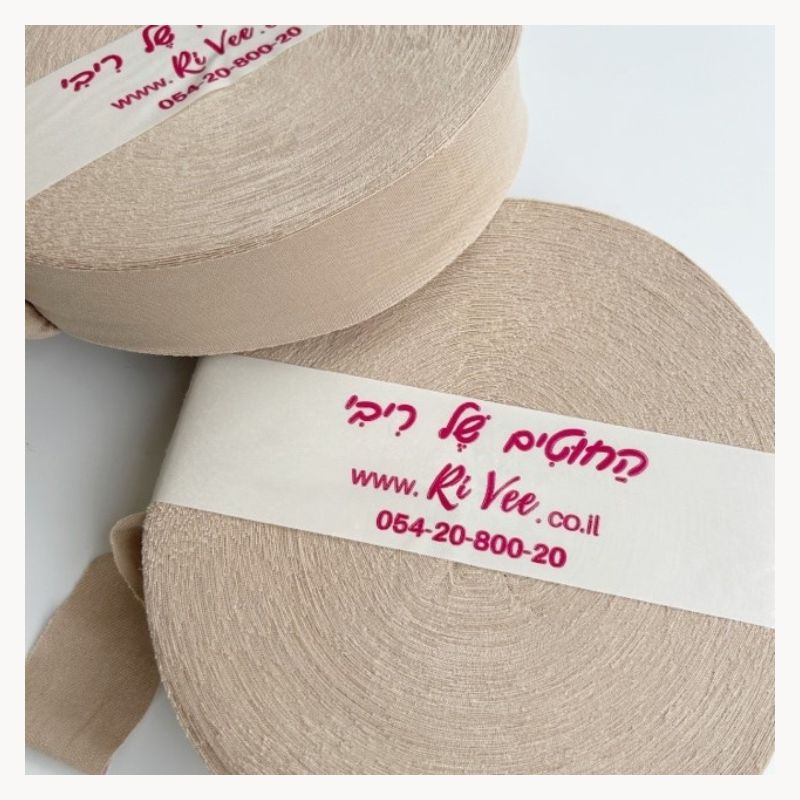 של רִיבִי
www.Ri Vee.co
054-20-800-20
הַחוּטִים שֶׁל רִיבִי
www.Ri Vee.co.il
054-20-800-20